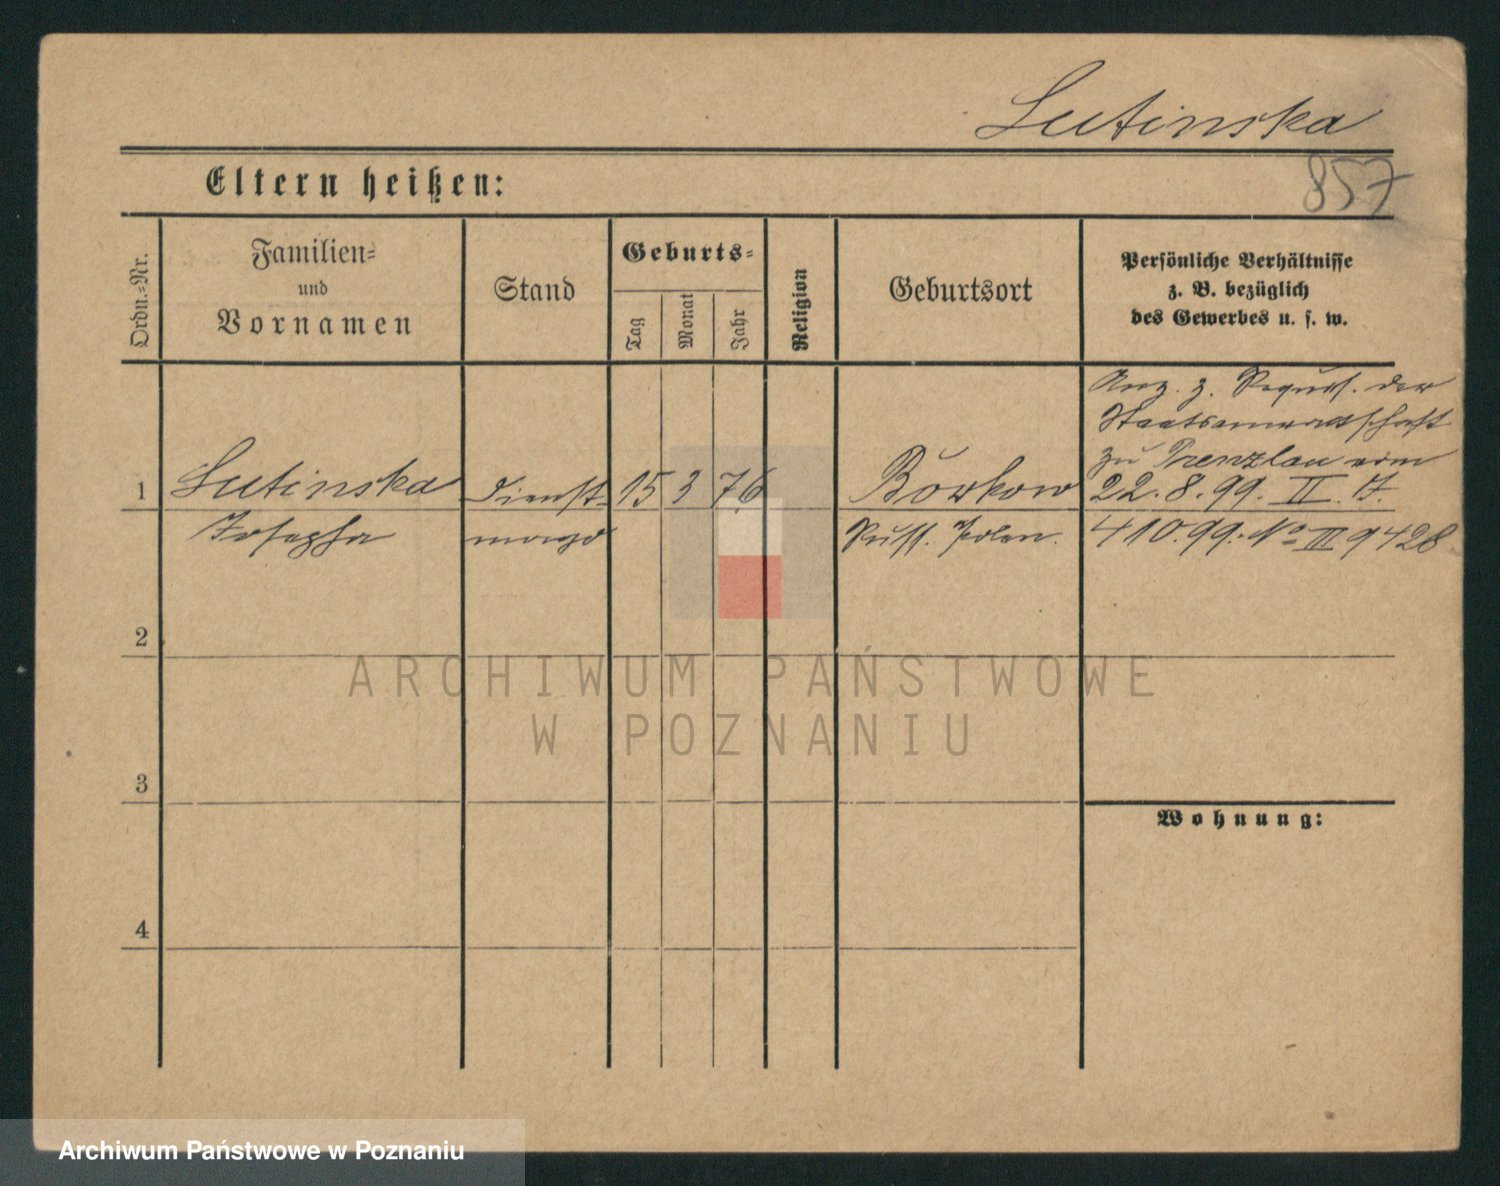 Lutinska
857
Eltern heißen:
Ordn.-Nr.
Familien-
und
Vornamen
Stand
Geburts-
Tag
Monat
Jahr
Religion
Geburtsort
Persönliche Verhältnisse
z. B. bezüglich
des Gewerbes u. s. w.
1
Lutinska
Josepha
Dienst-
magd
15
3
76
Borkow
Russ. Polen.
z. der
Staatsanwaltschaft
zu Prenzlau vom
22.8.99. II. J.
410.99. No III 9428
2
3
4
Wohnung:
ARCHIWUM PAŃSTWOWE
W POZNANIU
Archiwum Państwowe w Poznaniu